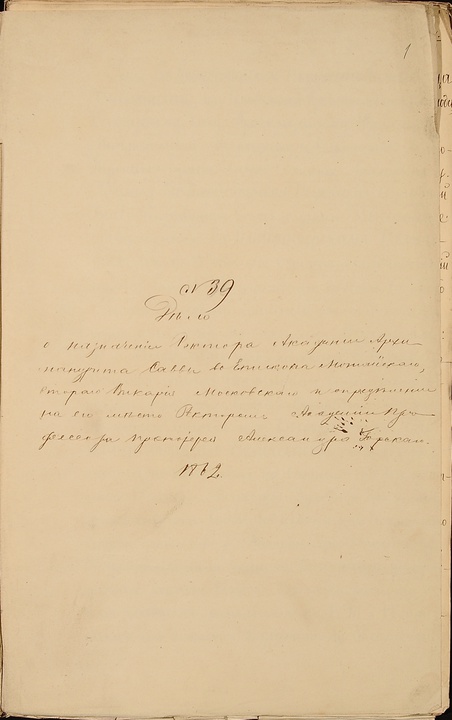 1
№ 39
Дѣло
о назначеніи Ректора Академіи Архи-
мандрита Саввы во Епископа Можайскаго,
втораго Викарія Московскаго и опредѣленіи
на его мѣсто Ректоромъ Академіи Про-
фессора Протоіерея Александра Горскаго.
1862.